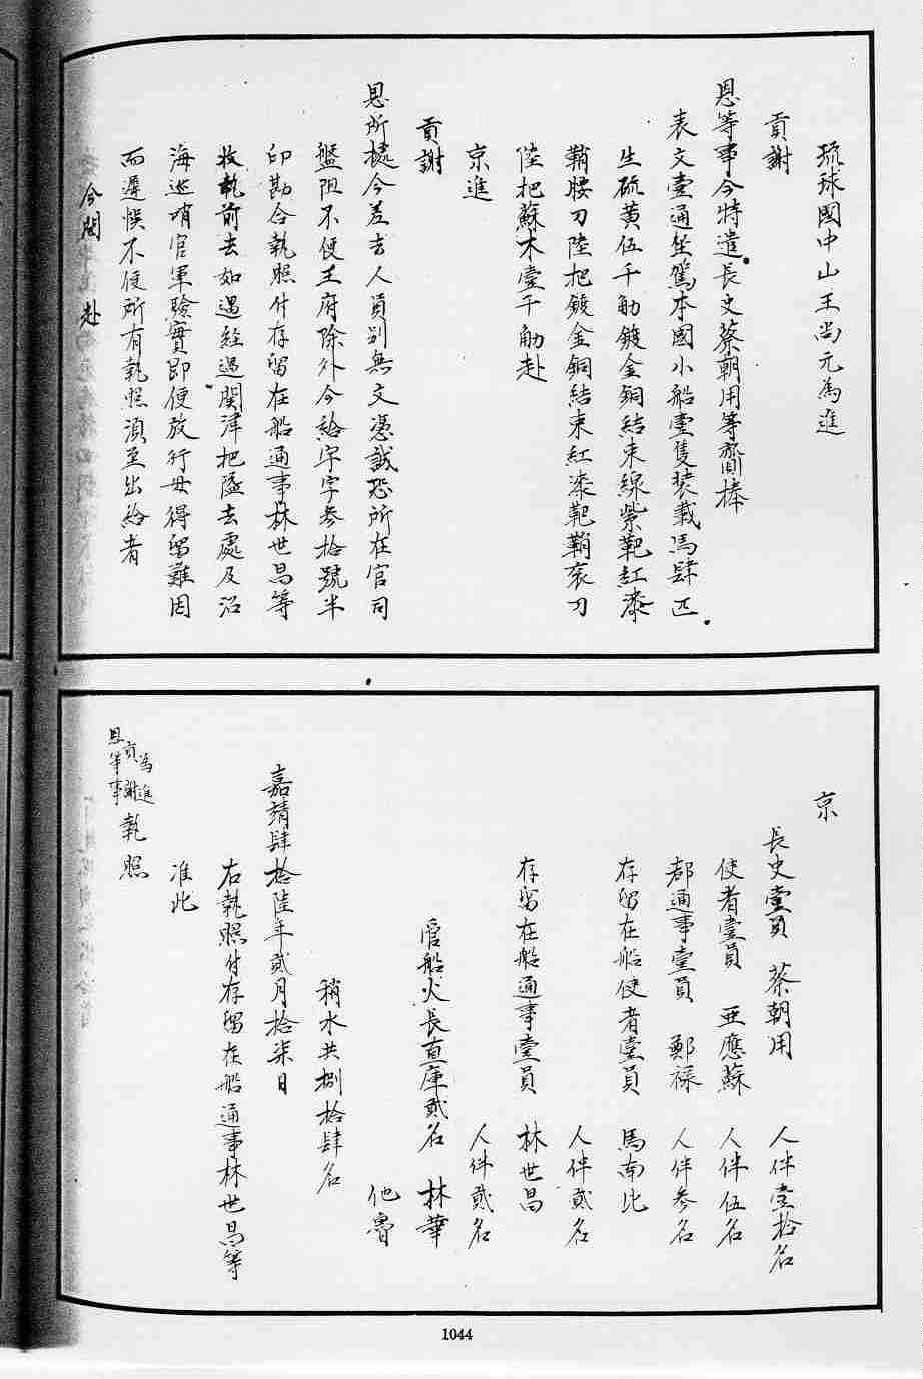 琉球國中山王尚元為進
貢謝
恩等事今特遣長史蔡朝用等齎捧
表文壹通坐駕本國小船壹隻裝載馬肆匹
生硫黄伍千觔鍍金銅結束線紫靶紅漆
鞘腰刀陸把鍍金銅結束紅漆靶鞘袞刀
陸把蘇木壹千觔赴
京進
貢謝
恩所據今差去人員别無文憑誠恐所在官司
盤阻不便王府除外今給字字參拾號半
印勘合執照付存留在船通事林世昌等
收執前去如遇經過関津把隘去處及沿
海巡哨官軍驗實即便放行毋得留難因
而遲悮不便所有執照須至出給者
今開 赴
京
長史壹員 蔡朝用 人伴壹拾名
使者壹員 亜應蘇 人伴伍名
都通事壹員 鄭祿 人伴參名
存留在船使者壹員 馬南比
人伴貳名
存留在船通事壹員 林世昌
人伴貳名
管船火長直庫貳名 林華
他魯
稍水共捌拾肆名
嘉靖肆拾陸年貳月拾柒日
右執照付存留在船通事林世昌等
准此
為進
貢謝
恩等事 執照
1044